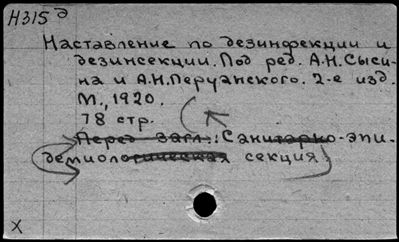 Н315 д
Наставление по дезинфекции и
дезинсекции. Под ред. А.Н. Сыси-
на и А.Н. Перуанского. 2-е изд.
М., 1920.
78 стр.
Перед загл.: Санитарно-эпи-
демиологическая секция
X